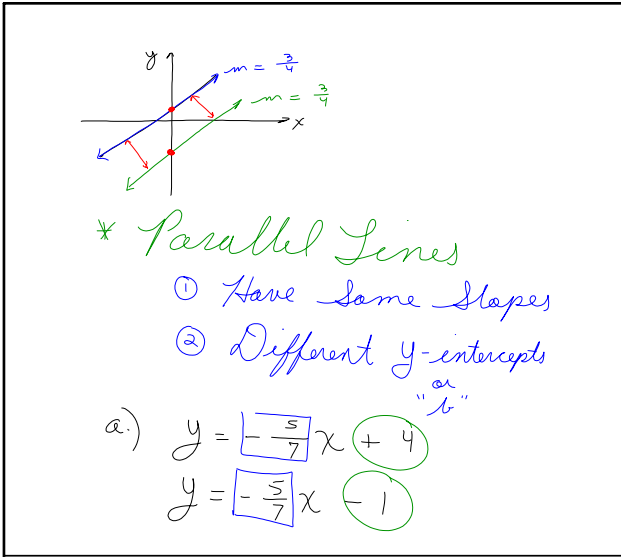 y
m = 3/4
m = 3/4
x
* Parallel Lines
① Have Same Slopes
② Different y-intercepts
or
"b"
a.) y = -5/7 x + 4
y = -5/7 x - 1